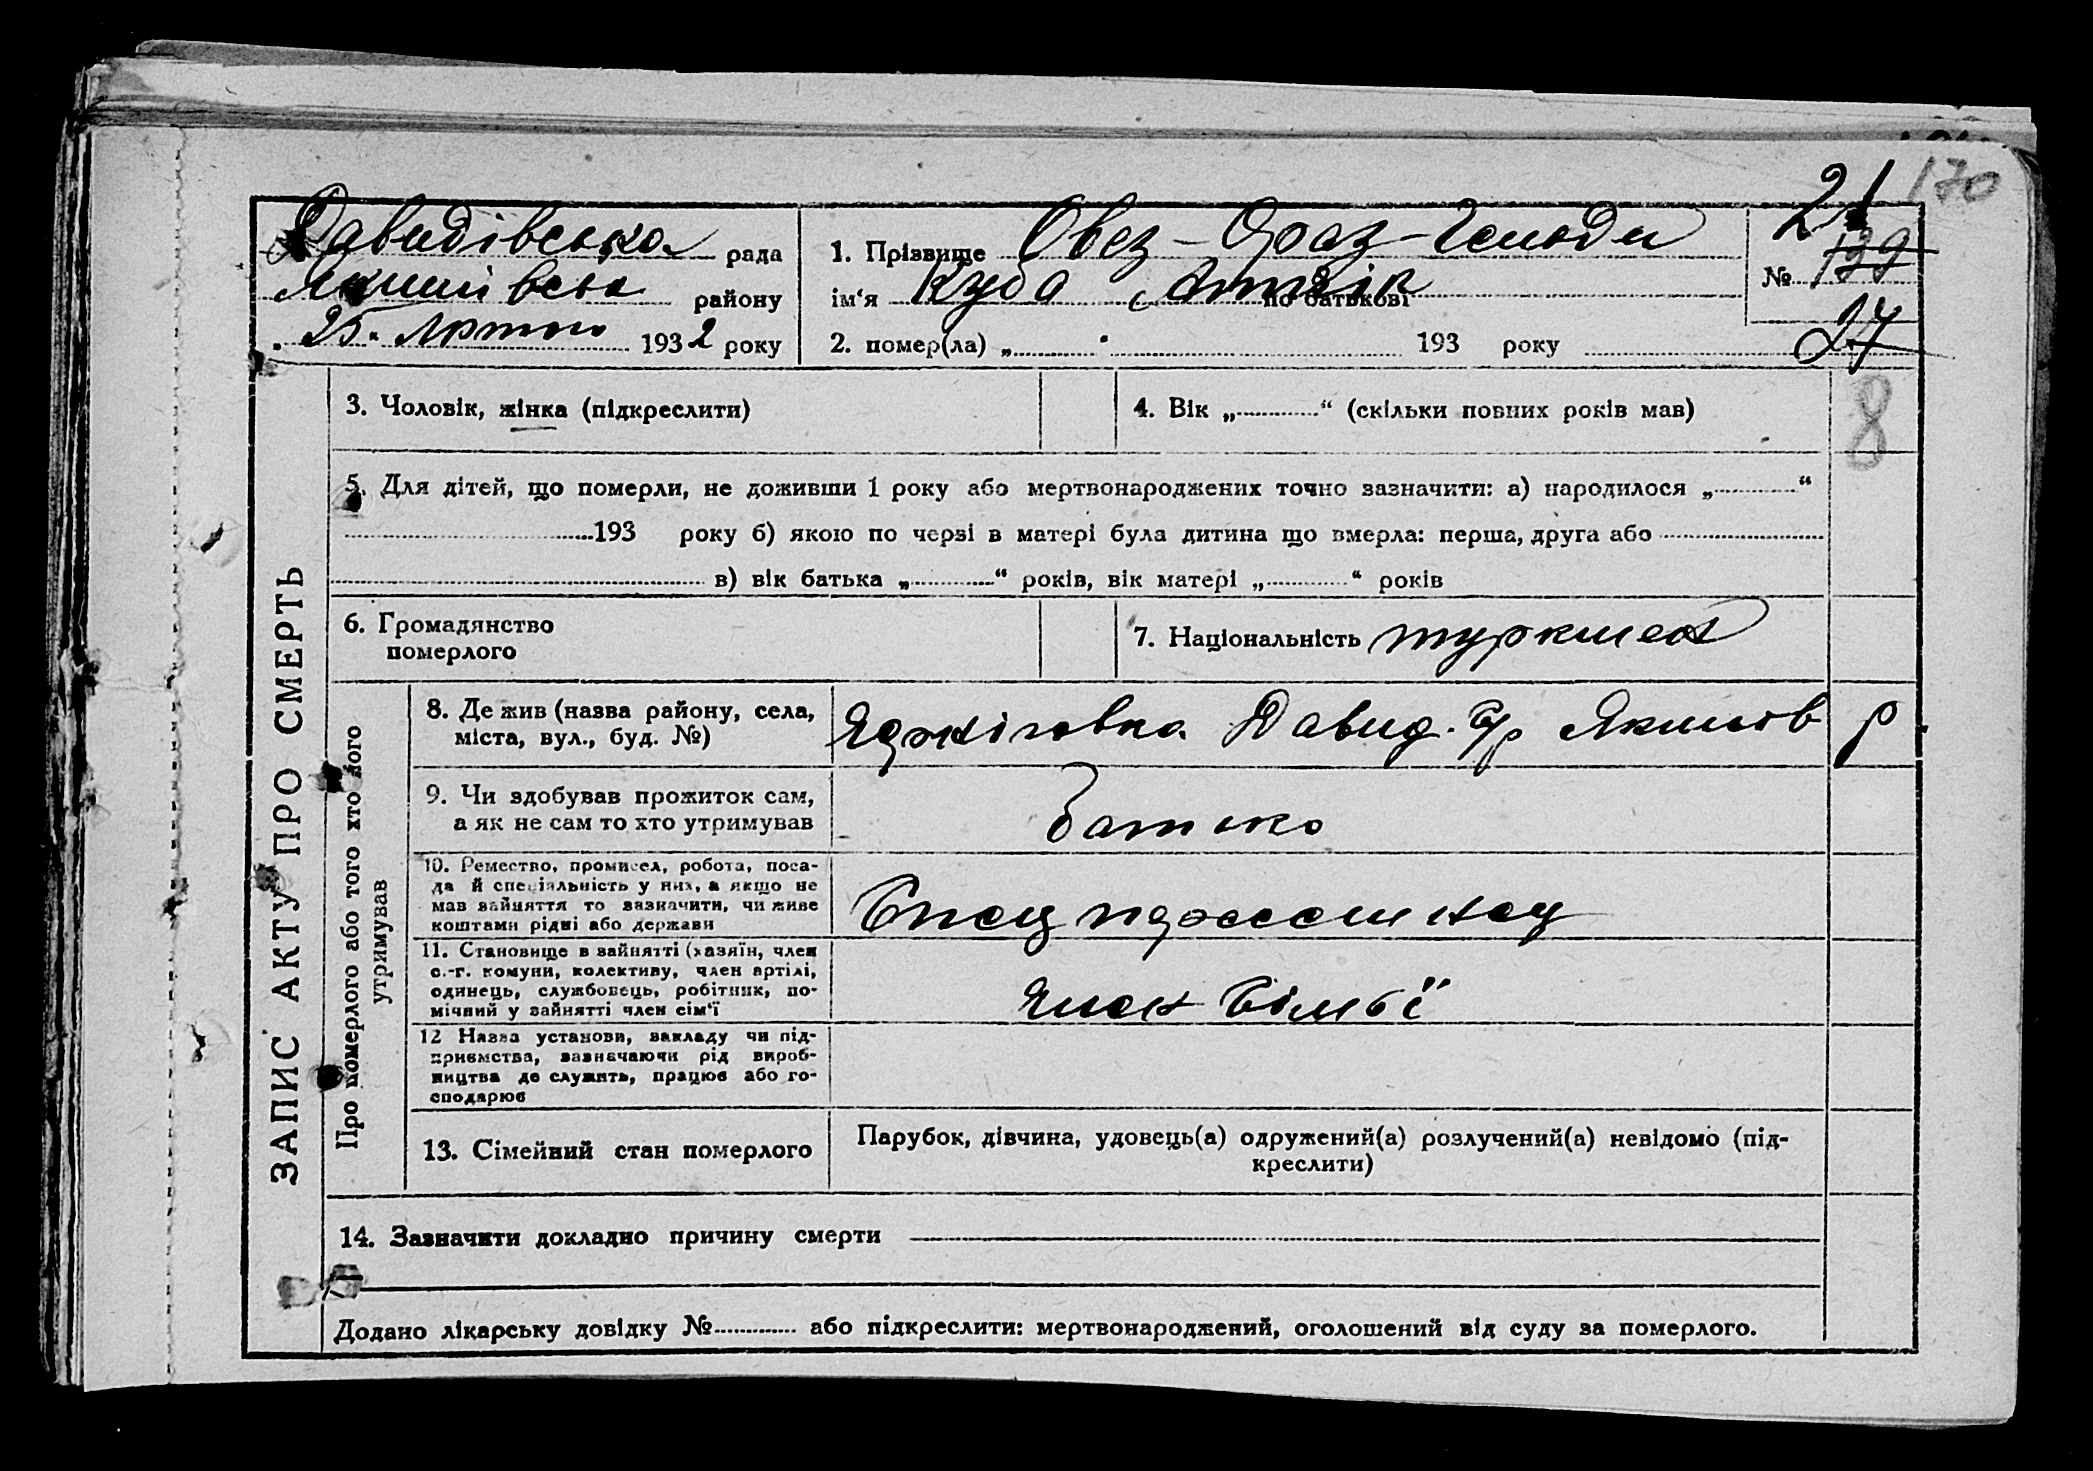 170
21
Давидівська рада
Якимівськ району
25. Лютого 1932 року
1. Прізвище Овез-Ораз-Гельди
ім'я Куба по батькові
№ 139
27
2. помер(ла) „ “ 193 року
3. Чоловік, жінка (підкреслити)
4. Вік „ “ (скільки повних років мав)
8
5. Для дітей, що померли, не доживши 1 року або мертвонароджених точно зазначити: а) народилося „ “
193 року б) якою по черзі в матері була дитина що вмерла: перша, друга або
в) вік батька „ “ років, вік матері „ “ років
6. Громадянство
померлого
7. Національність туркмен
ЗАПИС АКТУ ПРО СМЕРТЬ
Про померлого або того хто його
утримував
8. Де жив (назва району, села,
міста, вул., буд. №)
Давид. с/р Якимів р.
9. Чи здобував прожиток сам,
а як не сам то хто утримував
батько
10. Ремество, промисел, робота, поса-
да й спеціяльність у них, а якщо не
мав зайняття то зазначити, чи живе
коштами рідні або держави
11. Становище в зайнятті (хазяїн, член
с.-г. комуни, колективу, член артілі,
одинець, службовець, робітник, по-
мічний у зайнятті член сім'ї
член сімьї
12 Назва установи, закладу чи під-
приємства, зазначаючи рід вироб-
ництва де служить, працює або го-
сподарює
13. Сімейний стан померлого
Парубок, дівчина, удовець(а) одружений(а) розлучений(а) невідомо (під-
креслити)
14. Зазначити докладно причину смерти
Додано лікарську довідку № або підкреслити: мертвонароджений, оголошений від суду за померлого.